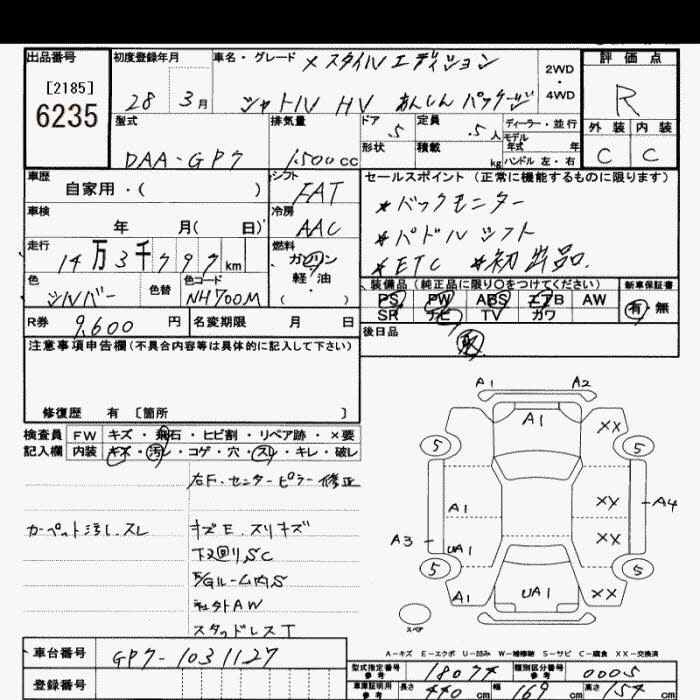 出品番号
[2185]
6235
初度登録年月
28 3月
車名・グレード
X スタイル エディション
シャトル HV あんしん パッケージ
2WD
・
4WD
評価点
R
外装 内装
C C
型式
DAA-GP7
排気量
1,500cc
ドア 5
定員 .5人
ディーラー・並行
モデル
年式 年
形状
積載 kg
ハンドル 左・右
車歴
自家用・( )
シフト
FAT
セールスポイント(正常に機能するものに限ります)
*バックモニター
*パドルシフト
*ETC *初出品.
車検
年 月( 日)
冷房
AAC
走行
14万3千797km
燃料
ガソリン
軽油
( )
色
シルバー
色替
色コード
NH700M
装備品(純正品に限り○をつけてください)
PS PW ABS エアB AW
SR ナビ TV カワ
新車保証書
有 無
R券 9,600円
名変期限 月 日
後日品
取
注意事項申告欄(不具合内容等は具体的に記入して下さい)
修復歴 有 〔箇所 〕
検査員 FW キズ・飛石・ヒビ割・リペア跡・×要
記入欄 内装 キズ・汚レ・コゲ・穴・スレ・キレ・破レ
右F.センターピラー修正
カーペット汚レ.スレ
キズE.スリキズ
下廻りSC
E/Gルーム内S
社外AW
スタッドレスT
A1 A2
A1
XX
5 5
A1 XX A4
A3 UA1 XX
5 5
A1 UA1 XX
スペア
A-キズ E-エクボ U-凹み W-補修跡 S-サビ C-腐食 XX-交換済
車台番号 GP7-1031127
登録番号
型式指定番号 参考 18074
類別区分番号 参考 0005
車庫証明用 参考 長さ 440cm 幅 169cm 高さ 154cm